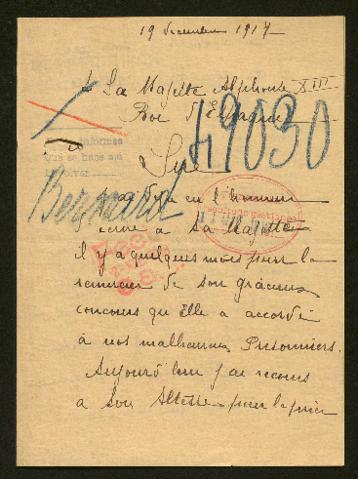 19 décembre 1917
A Sa Majesté Alphonse XIII
Roi d'Espagne
49030
Sire
Bernard
j'ai déjà eu l'honneur
d'écrire à Sa Majesté
il y a quelques mois pour la
remercier de son gracieux
concours qu'Elle a accordé
à nos malheureux Prisonniers.
Aujourd'hui j'ai recours
à Son Altesse pour la prier